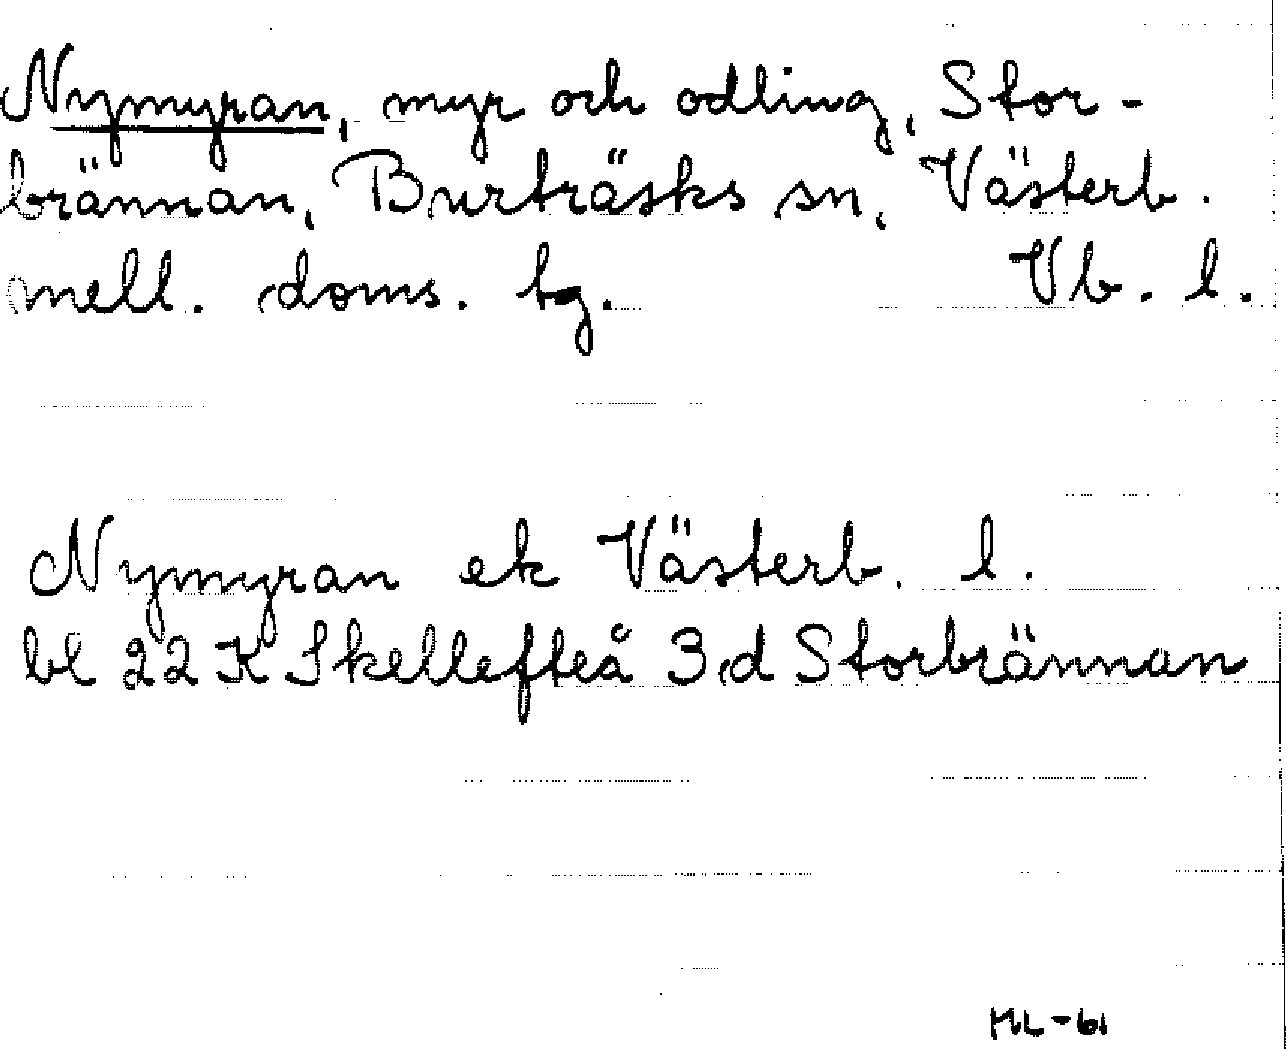 Nymyran, myr och odling, Stor-
brännan, Burträsks sn, Västerb.
mell. doms. tg. Vb. l.
Nymyran ek Västerb. l.
bl 22 K Skellefteå 3 d Storbrännan
ML-61